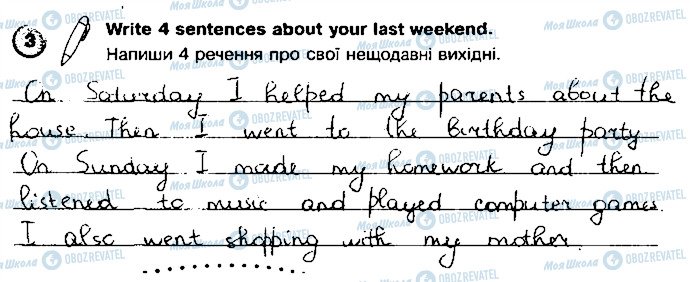 3 Write 4 sentences about your last weekend.
Напиши 4 речення про свої нещодавні вихідні.
On Saturday I helped my parents about the
house. Then I went to the Birthday party
On Sunday I made my homework and then
listened to music and played computer games.
I also went shopping with my mother.
МояШкола OBOZREVATEL